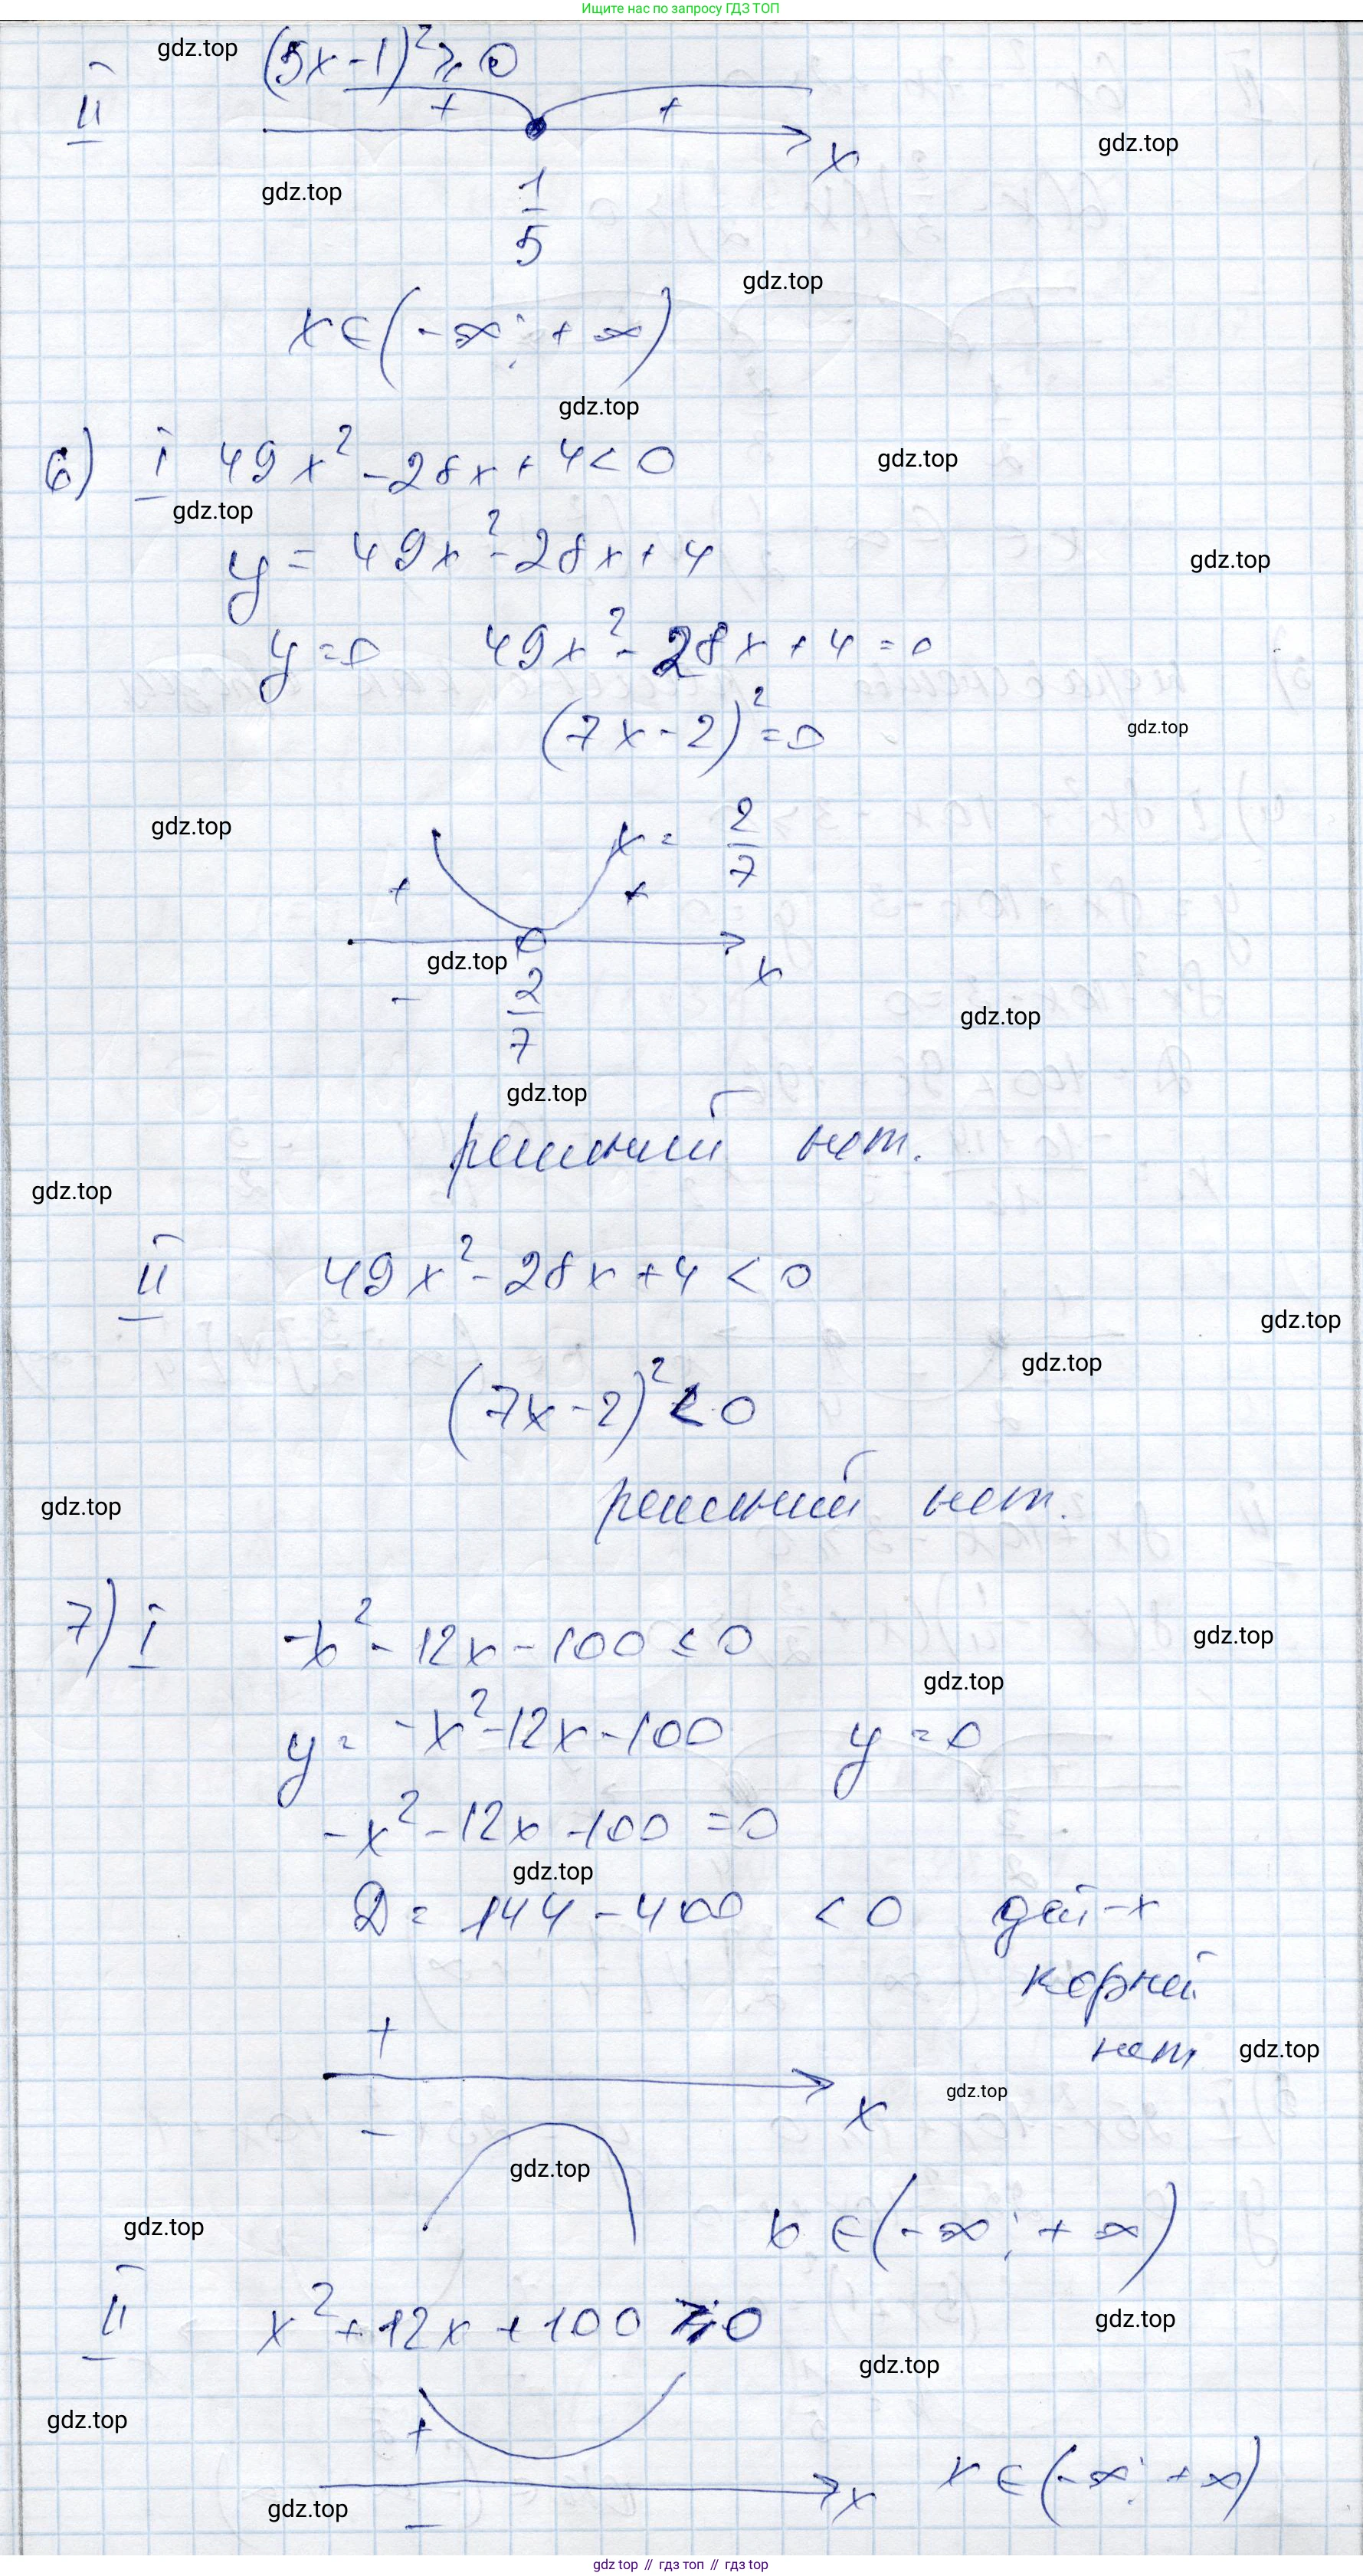 Ищите нас по запросу ГДЗ ТОП
gdz.top
(5x-1)² ⩾ 0
II
+ +
x
gdz.top
gdz.top
1/5
gdz.top
x∈(-∞; +∞)
gdz.top
6) I 49x² - 28x + 4 < 0
gdz.top
gdz.top
y = 49x² - 28x + 4
gdz.top
y = 0 49x² - 28x + 4 = 0
(7x - 2)² = 0
gdz.top
gdz.top
x = 2/7
+ +
gdz.top
x
- 2/7
gdz.top
gdz.top
решений нет.
gdz.top
II 49x² - 28x + 4 < 0
gdz.top
gdz.top
(7x - 2)² < 0
gdz.top
решений нет.
7) I -x² - 12x - 100 ≤ 0
gdz.top
gdz.top
y = -x² - 12x - 100 y = 0
-x² - 12x - 100 = 0
gdz.top
D = 144 - 400 < 0 дей-х
корней
нет
gdz.top
+
gdz.top
x
-
gdz.top
gdz.top
x ∈ (-∞; +∞)
II x² + 12x + 100 ⩾ 0
gdz.top
gdz.top
gdz.top
+
x ∈ (-∞; +∞)
x
gdz.top
-
gdz top // гдз топ // гдз top